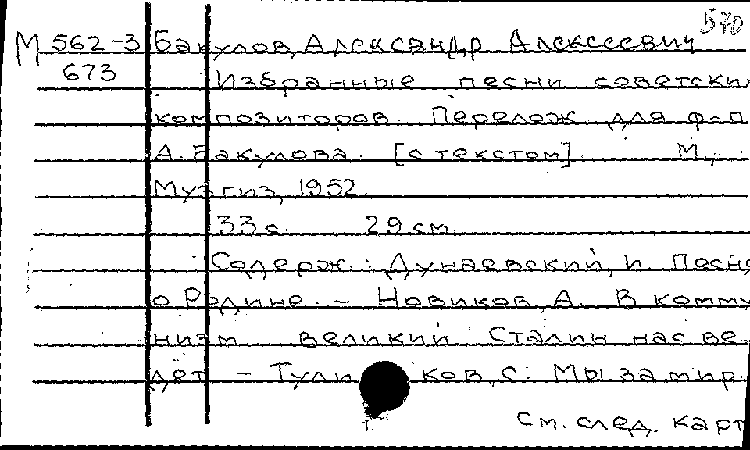 570
М 562-3 Бакулов, Александр Алексеевич
673 Избранные песни советски
композиторов. Перелож. для ф-п
А. Бакулова. [с текстом]. М.,
Музгиз, 1952.
33 с. 29 см
Содерж.: Дунаевский, И. Песня
о Родине. – Новиков, А. В комму
низм великий Сталин нас ве
дет – Туликов, С. Мы за мир.
См. след. карт